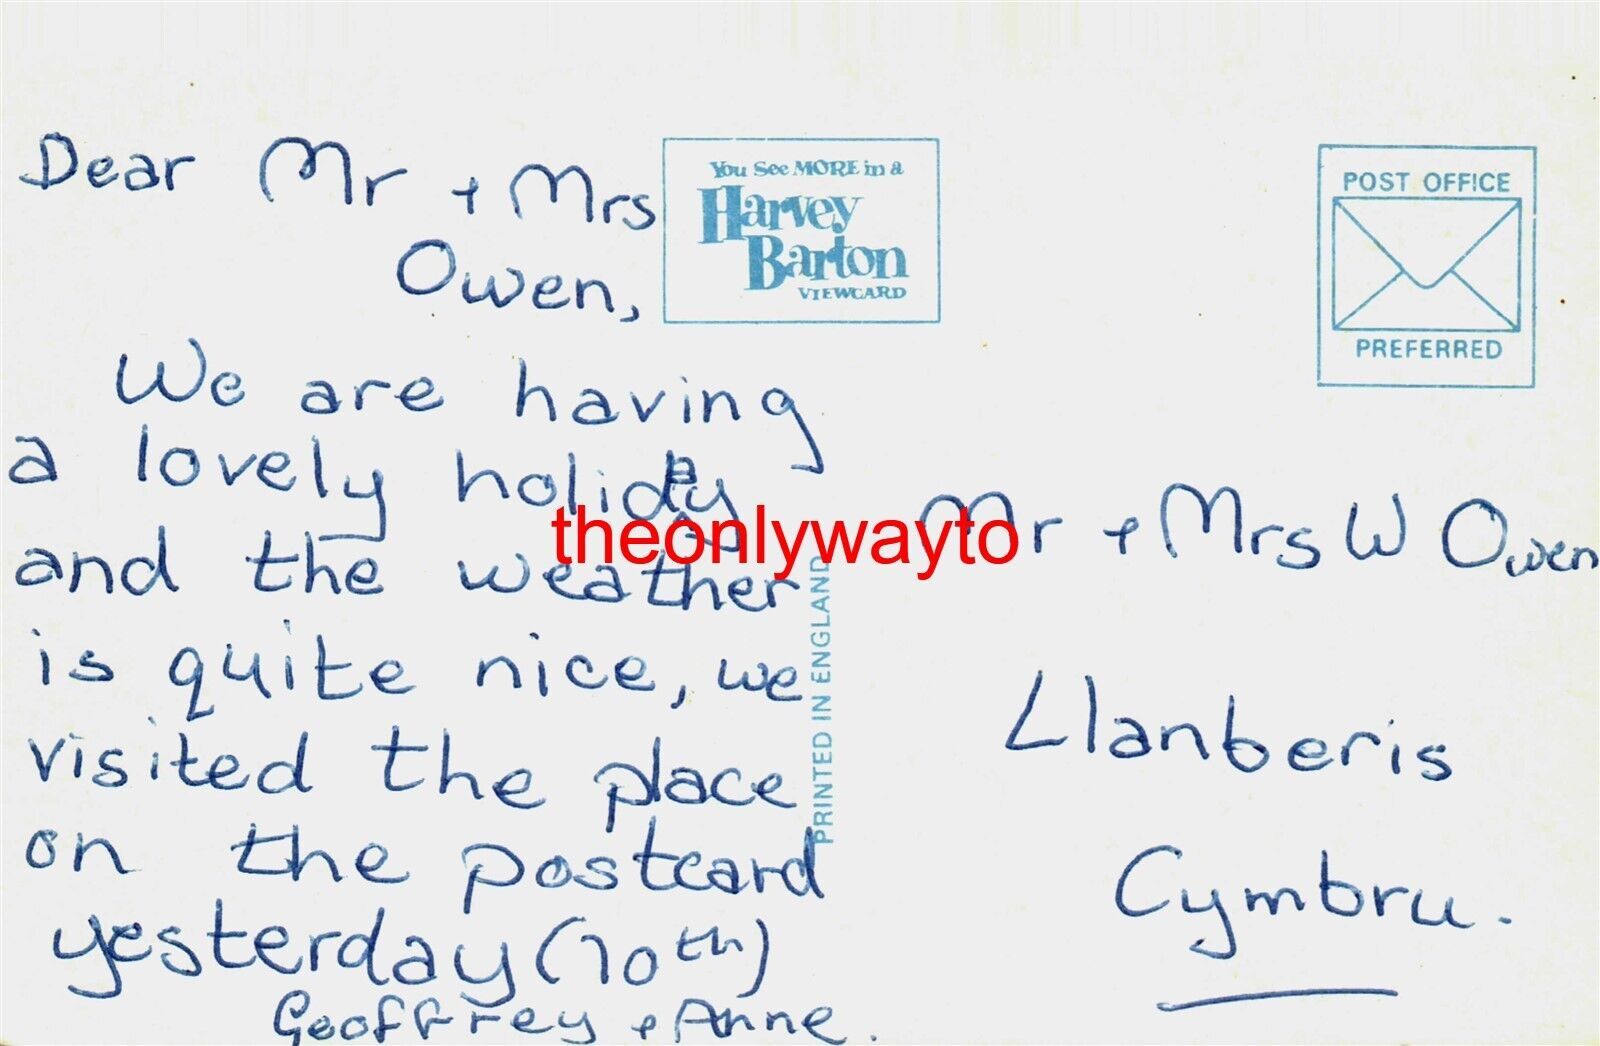 Dear Mr + Mrs
Owen,
We are having
a lovely holiday
and the weather
is quite nice, we
visited the place
on the postcard
yesterday (10th)
Geoffrey + Anne.
You See MORE in a
Harvey
Barton
VIEWCARD
PRINTED IN ENGLAND
POST OFFICE
PREFERRED
Mr + Mrs W Owen
Llanberis
Cymbru.
theonlywayto